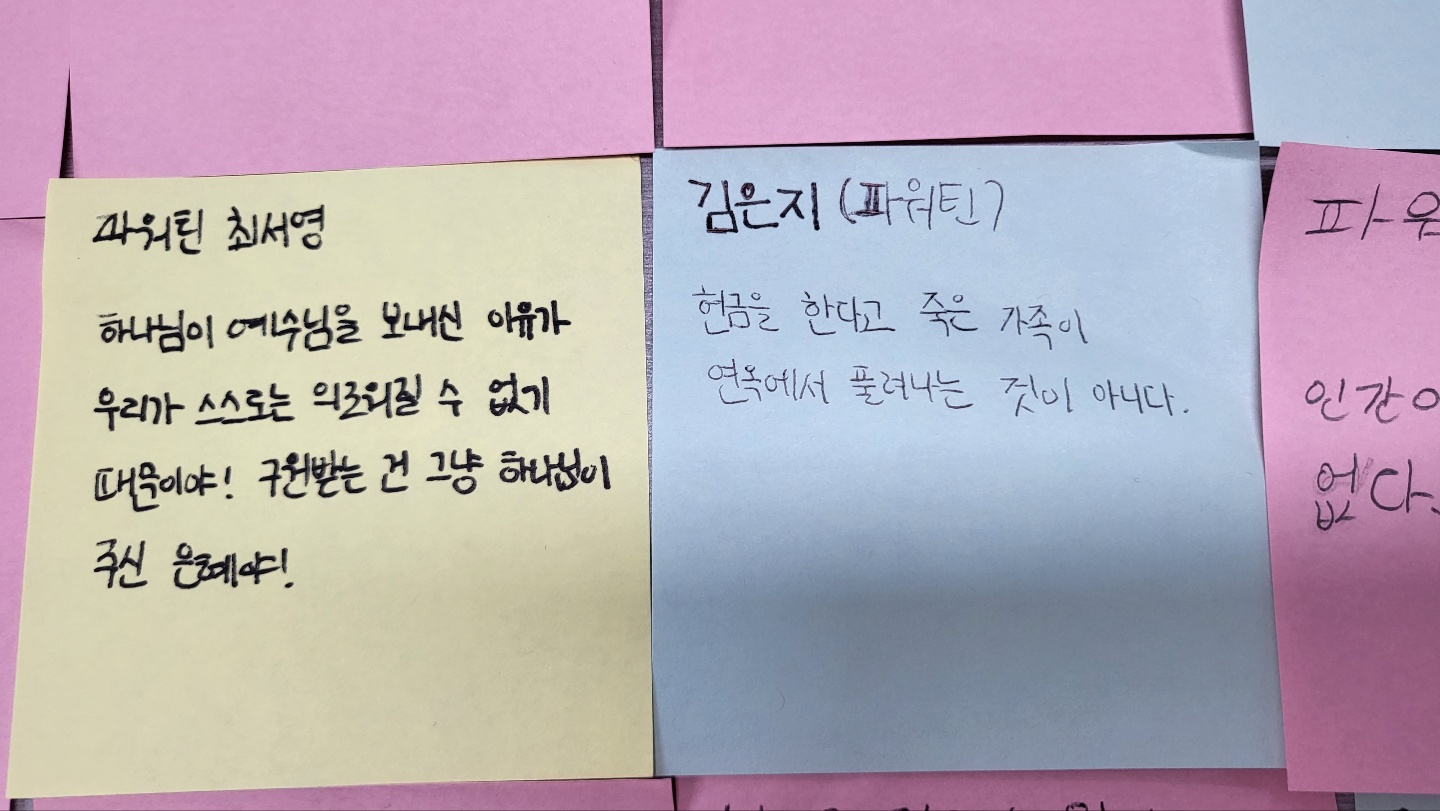 파워틴 최서영
하나님이 예수님을 보내신 이유가
우리가 스스로는 의로워질 수 없기
때문이야! 구원받는 건 그냥 하나님이
주신 은혜야!
김은지 (파워틴)
헌금을 한다고 죽은 가족이
연옥에서 풀려나는 것이 아니다.
파워
인간이
없다.